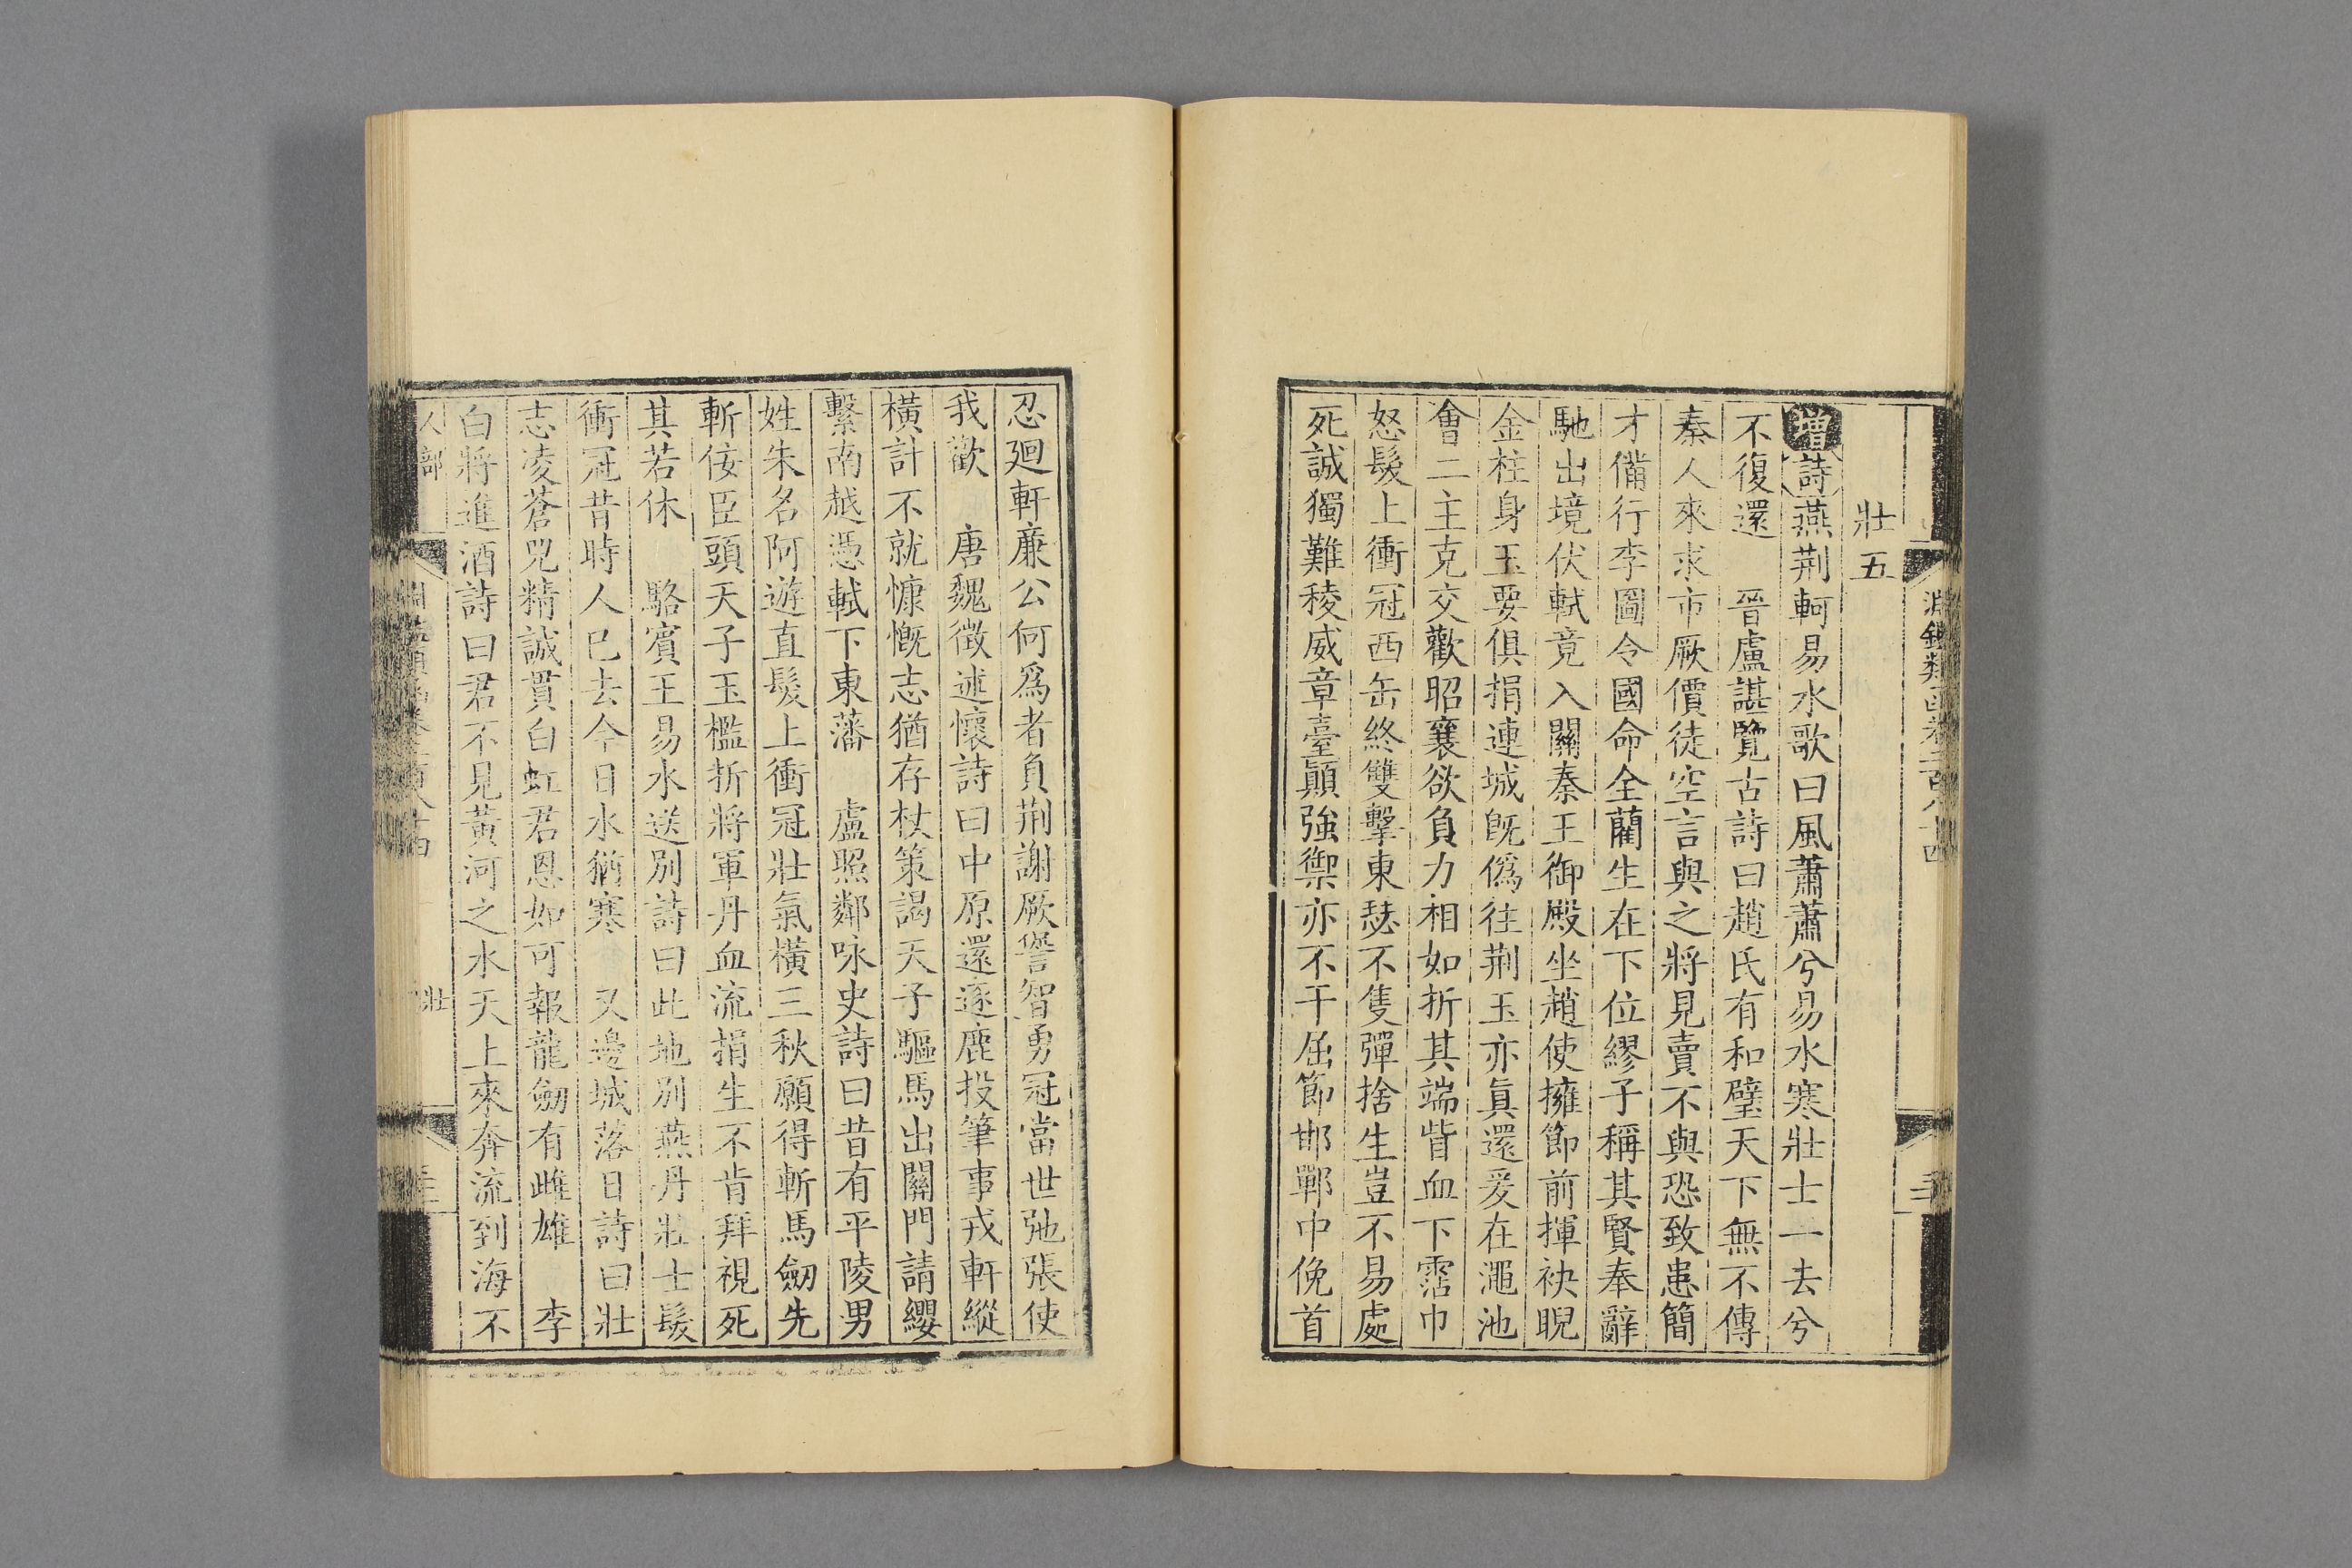 壯五
增詩燕荆軻易水歌曰風蕭蕭兮易水寒壯士一去兮
不復還　晉盧諶覽古詩曰趙氏有和璧天下無不傳
秦人來求市厥價徒空言與之將見賣不與恐致患簡
才備行李圖令國命全藺生在下位繆子稱其賢奉辭
馳出境伏軾竟入關秦王御殿坐趙使擁節前揮袂睨
金柱身玉要俱捐連城旣僞往荆玉亦眞還爰在澠池
會二主克交歡昭襄欲負力相如折其端眥血下霑巾
怒髮上衝冠西缶終雙擊東瑟不隻彈捨生豈不易處
死誠獨難稜威章臺顚強禦亦不干屈節邯鄲中俛首
忍廻軒廉公何爲者負荆謝厥諐智勇冠當世弛張使
我歡　唐魏徵述懷詩曰中原還逐鹿投筆事戎軒縱
橫計不就慷慨志猶存杖策謁天子驅馬出關門請纓
繫南越憑軾下東藩　盧照鄰咏史詩曰昔有平陵男
姓朱名阿遊直髮上衝冠壯氣橫三秋願得斬馬劒先
斬佞臣頭天子玉檻折將軍丹血流捐生不肯拜視死
其若休　駱賓王易水送別詩曰此地別燕丹壯士髮
衝冠昔時人已去今日水猶寒　又邊城落日詩曰壯
志凌蒼兕精誠貫白虹君恩如可報龍劒有雌雄　李
白將進酒詩曰君不見黃河之水天上來奔流到海不
人部　壯